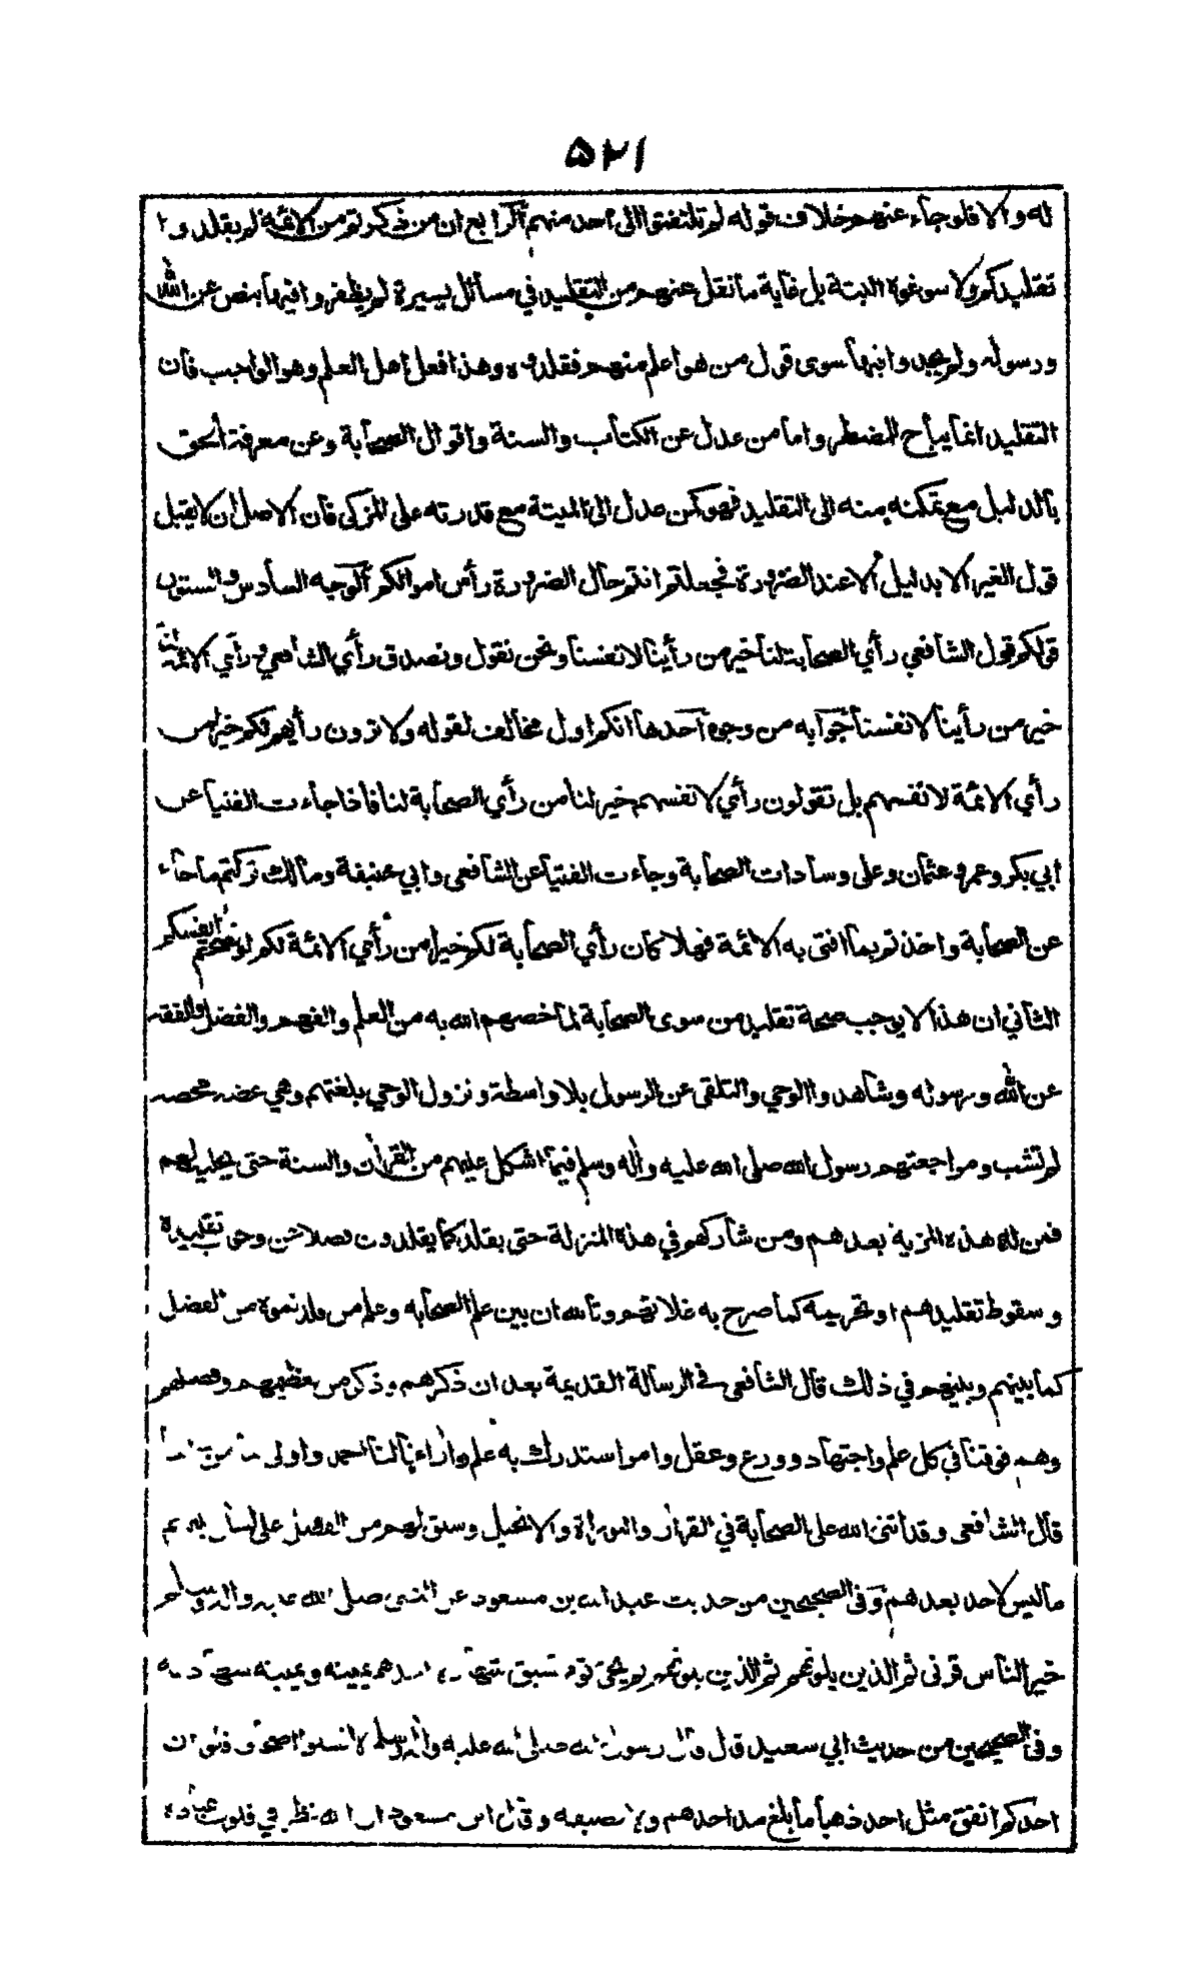 ٥٢١
له والا فلو جاء عنهم خلاف قوله لم تلتفتوا الى احد منهم الرابع ان من ذكرتم من الائمة لم يقلدوا
تقليدكم ولا سوغوه البتة بل غاية ما نقل عنهم من التقليد في مسائل يسيرة لم يظفروا فيها بنص عن الله
ورسوله ولم يجدوا فيها سوى قول من هو اعلم منهم فقلدوه وهذا فعل اهل العلم وهو الواجب فان
التقليد انما يباح للمضطر واما من عدل عن الكتاب والسنة واقوال الصحابة وعن معرفة الحق
بالدليل مع تمكنه منه الى التقليد فهو كمن عدل الى الميتة مع قدرته على المزكى فان الاصل ان لا يقبل
قول الغير الا بدليل الا عند الضرورة فجعلتم انتم حال الضرورة رأس اموالكم الوجه السادس والستون
قولكم قول الشافعي رأي الصحابة لنا خير من رأينا لانفسنا ونحن نقول ونصدق رأي الشافعي ورأي الائمة لنا
خير من رأينا لانفسنا جوابه من وجوه احدها انكم اول مخالف لقوله ولا ترون رأيهم لكم خيرا من
رأي الائمة لانفسهم بل تقولون رأي لانفسهم خير لنا من رأي الصحابة لنا فاذا جاءت الفتيا عن
ابي بكر وعمر وعثمان وعلى وسادات الصحابة وجاءت الفتيا عن الشافعى وابي حنيفة ومالك تركتم ما جاء
عن الصحابة واخذتم بما افتى به الائمة فهلا كان رأي الصحابة لكم خيرا من رأي الائمة لكم لو نصحتم انفسكم
الثاني ان هذا لا يوجب صحة تقليد من سوى الصحابة لما خصهم الله به من العلم والفهم والفضل والفقه
عن الله ورسوله وشاهدوا الوحي والتلقى عن الرسول بلا واسطة ونزول الوحي بلغتهم وهي غضة محضة
لم تشب ومراجعتهم رسول الله صلى الله عليه وآله وسلم فيما اشكل عليهم من القرآن والسنة حتى يجليه لهم
فمن له هذه المزية بعدهم ومن شاركهم في هذه المنزلة حتى يقلد كما يقلدون فضلا عن وجوب تقليده
وسقوط تقليدهم او تحريمه كما صرح به غلاتهم وتالله ان بين علم الصحابة وعلم من قلدتموه من الفضل
كما بينهم وبينهم في ذلك قال الشافعى في الرسالة القديمة بعد ان ذكرهم وذكر من تعظيمهم وفضلهم
وهم فوقنا في كل علم واجتهاد وورع وعقل وامر استدرك به علم وآراءهم لنا احمد واولى بنا من رأينا
قال الشافعى وقد اثنى الله على الصحابة في القرآن والتوراة والانجيل وسبق لهم من الفضل على لسان نبيهم
ما ليس لاحد بعدهم وفى الصحيحين من حديث عبد الله بن مسعود عن النبى صلى الله عليه وآله وسلم
خير الناس قرنى ثم الذين يلونهم ثم الذين يلونهم ثم يجئ قوم تسبق شهادة احدهم يمينه ويمينه شهادته
وفى الصحيحين من حديث ابي سعيد قال قال رسول الله صلى الله عليه وآله وسلم لا تسبوا اصحابى فلو ان
احدكم انفق مثل احد ذهبا ما بلغ مد احدهم ولا نصيفه وقال ابن مسعود ان الله نظر في قلوب عباده